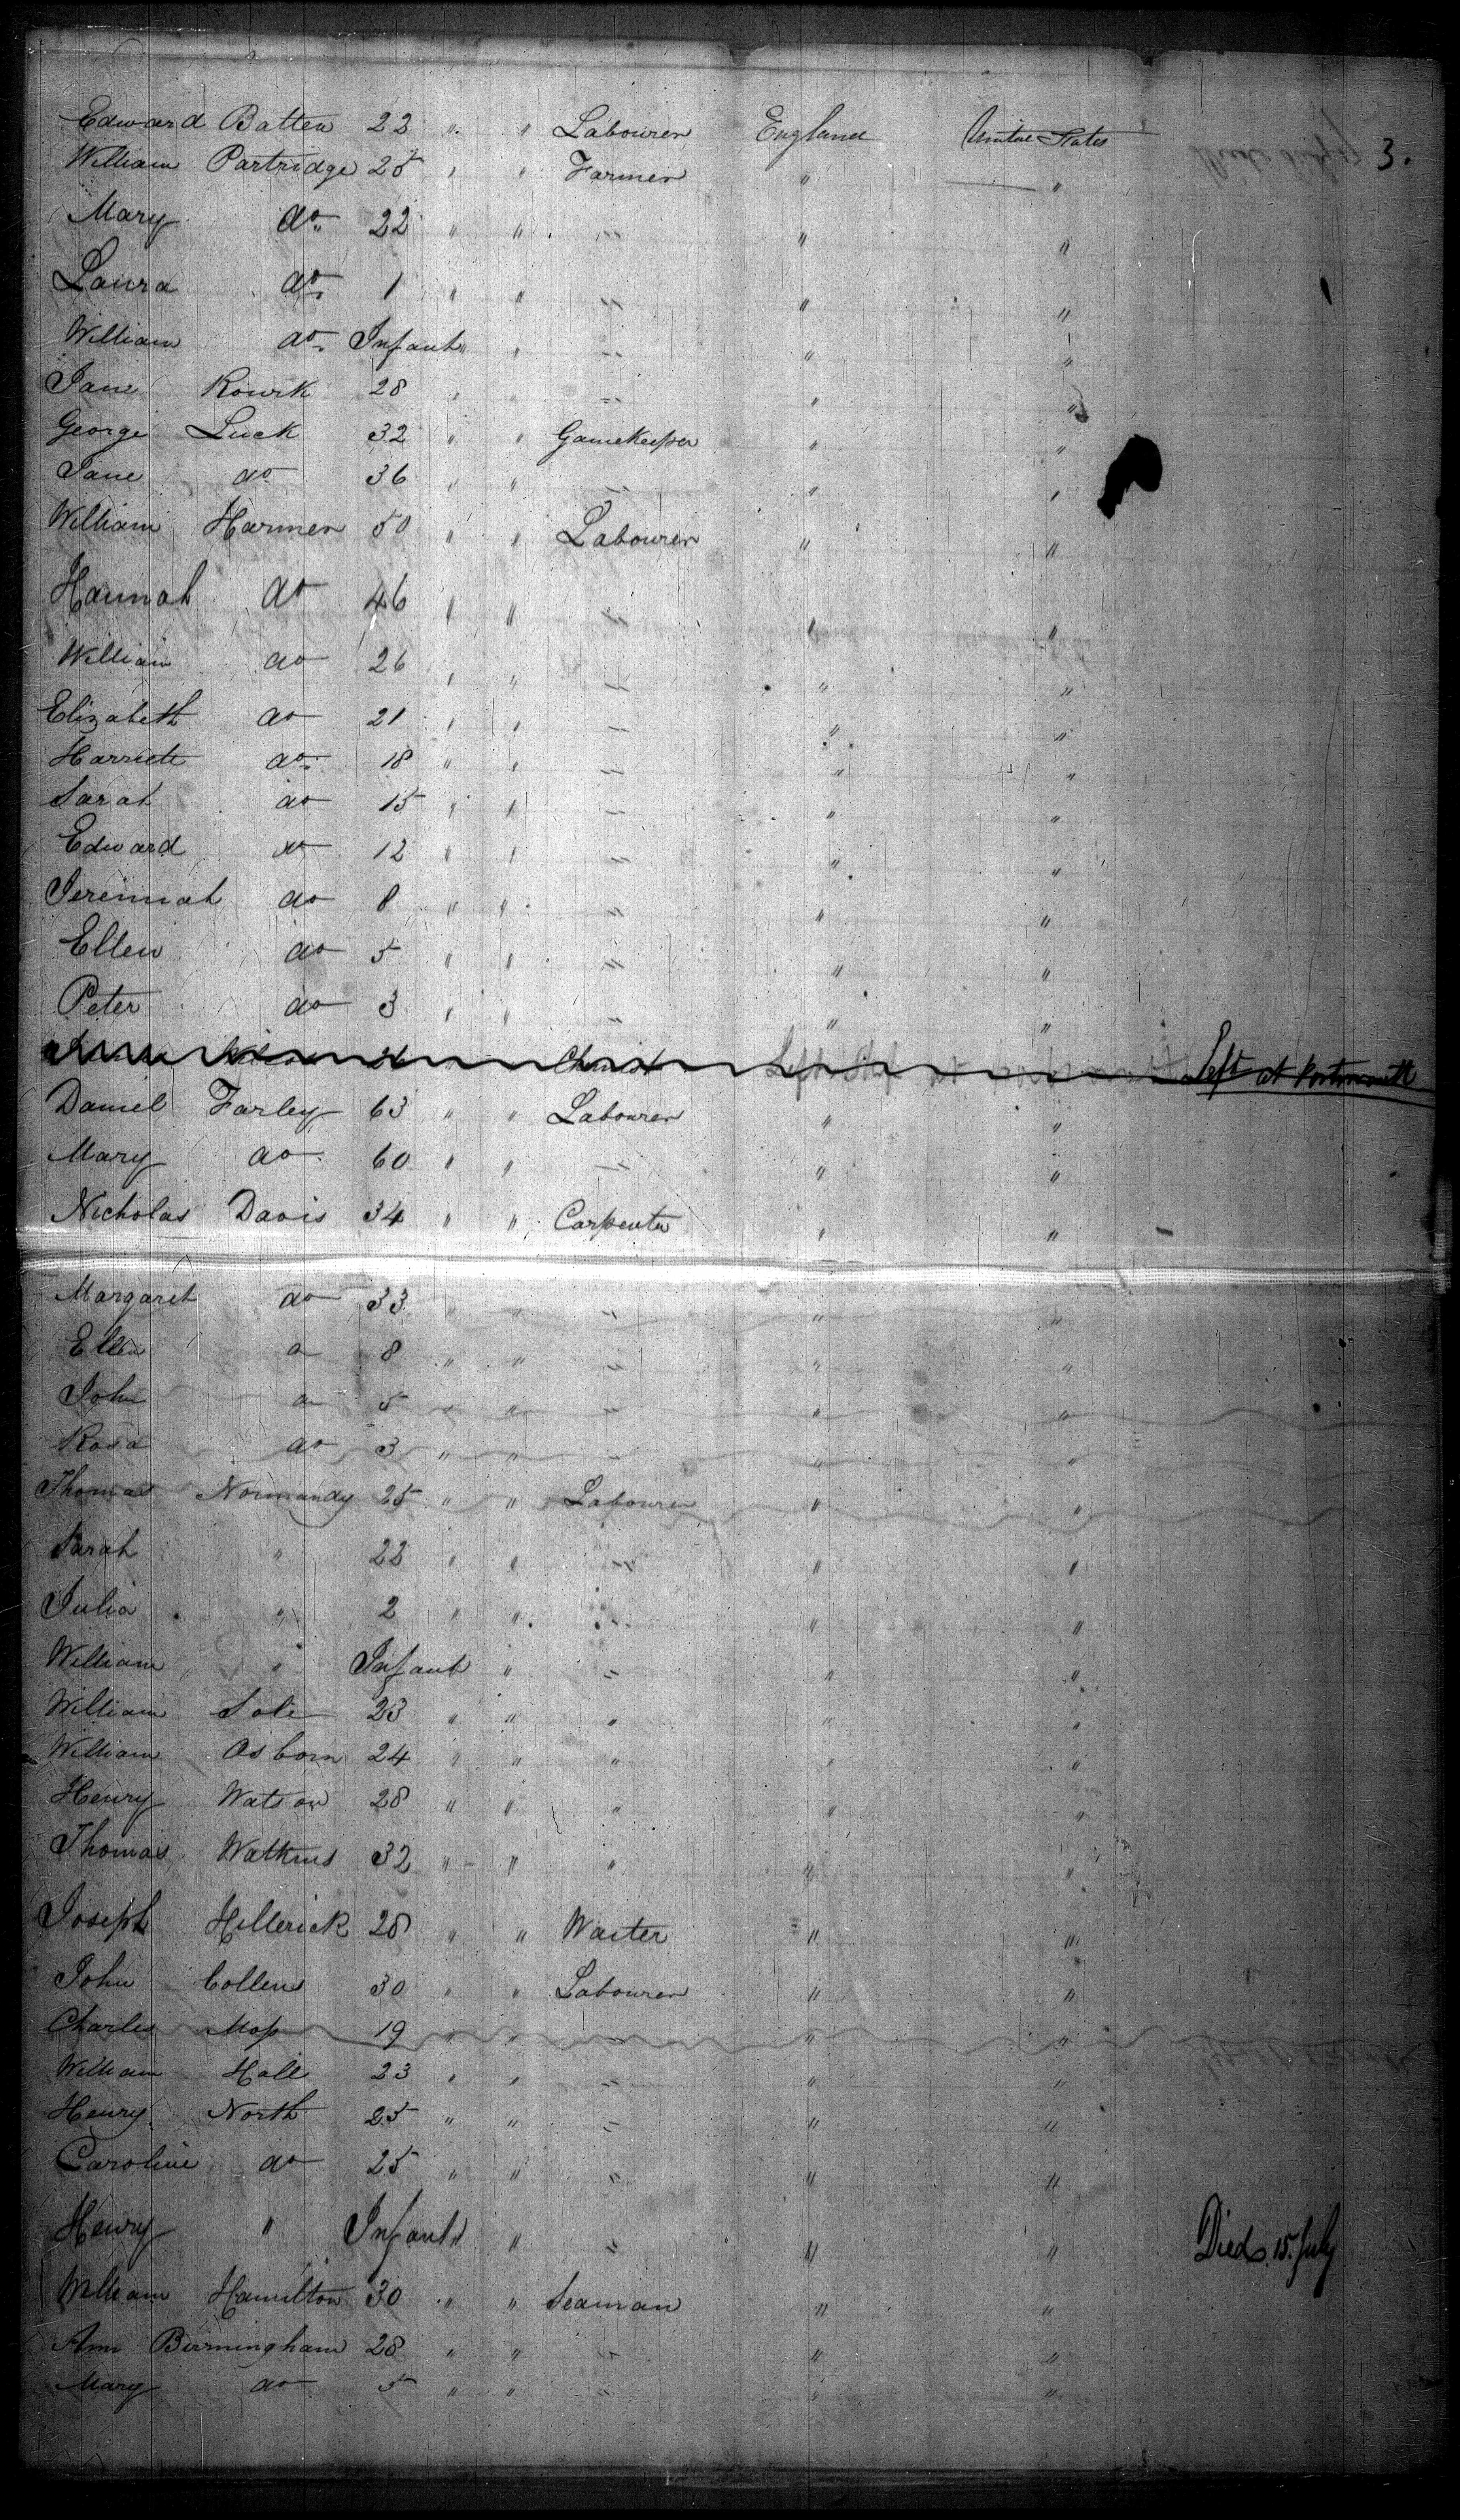 3.
Edward Batten 22 " " Labourer England United States
William Partridge 25 " " Farmer " "
Mary do 22 " " " " "
Laura do 1 " " " " "
William do Infant " " " "
Jane Rourk 28 " " " "
George Luck 32 " " Gamekeeper " "
Jane do 36 " " " " "
William Harmer 50 " " Labourer " "
Hannah do 46 " " " " "
William do 26 " " " " "
Elizabeth do 21 " " " " "
Harriett do 18 " " " " "
Sarah do 15 " " " " "
Edward do 12 " " " " "
Jeremiah do 8 " " " " "
Ellen do 5 " " " " "
Peter do 3 " " " " "
26 Chemist Left at Portsmouth
Daniel Farley 63 " " Labourer " "
Mary do 60 " " " " "
Nicholas Davis 34 " " Carpenter " "
Margaret do 33 " " " " "
Ellen do 8 " " " " "
John do 5 " " " " "
Rosa do 3 " " " " "
Thomas Normandy 25 " " Labourer " "
Sarah " 22 " " " " "
Julia " 2 " " " " "
William " Infant " " " "
William Sole 23 " " " " "
William Osborn 24 " " " " "
Henry Watson 28 " " " " "
Thomas Watkins 32 " " " " "
Joseph Hillerick 28 " " Waiter " "
John Collens 30 " " Labourer " "
Charles Moss 19 " " " " "
William Hall 23 " " " " "
Henry North 25 " " " " "
Caroline do 25 " " " " "
Henry " Infant " " " " Died 15. July
William Hamilton 30 " " Seaman " "
Ann Birmingham 28 " " " " "
Mary do 5 " " " " "